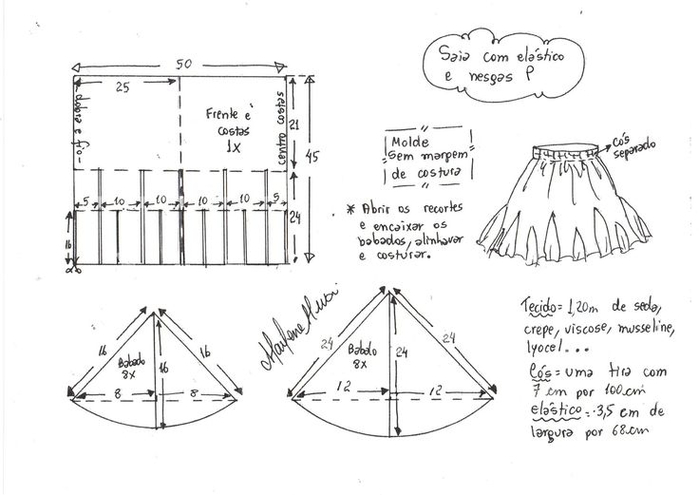 50
25
dobra e fio
Frente e
costas
1X
centro costas
21
45
5
10
10
10
10
5
24
16
Saia com elástico
e nesgas P
Molde
Sem margem
de costura
cós
separado
* Abrir os recortes
e encaixar os
babados, alinhavar
e costurar.
16
Babado
8x
16
16
8
8
Marlene Mukai
24
Babado
8x
24
24
12
12
Tecido= 1,20m de seda,
crepe, viscose, musseline,
lyocel...
Cós= uma tira com
7 cm por 100cm
elástico=.3,5 cm de
largura por 68cm